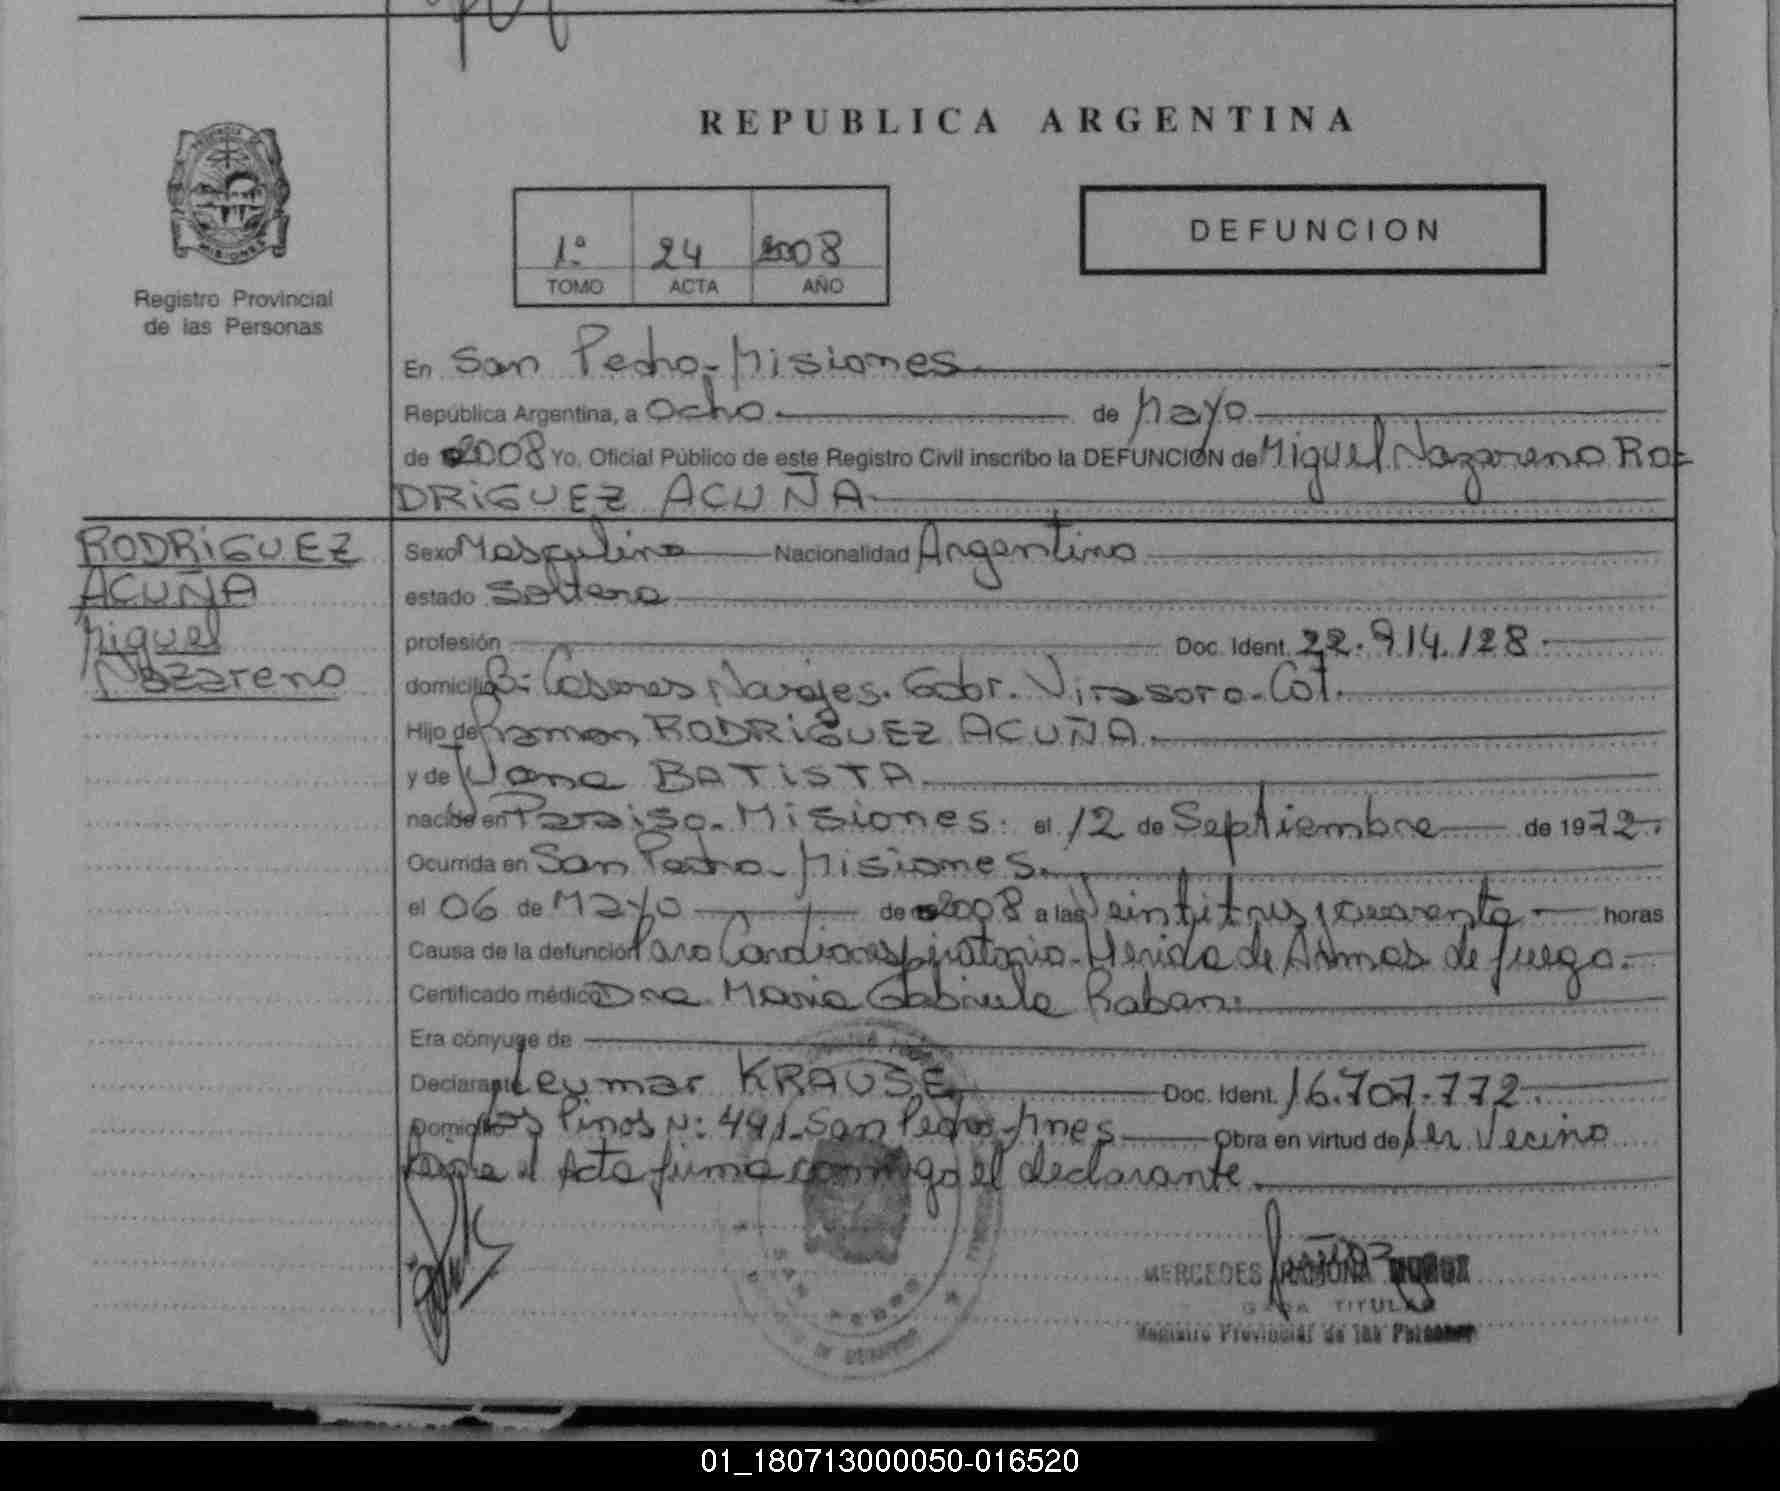 REPUBLICA ARGENTINA
Registro Provincial
de las Personas
1º 24 2008
TOMO ACTA AÑO
DEFUNCION
En San Pedro-Misiones
República Argentina, a Ocho de Mayo
de 2008 Yo, Oficial Público de este Registro Civil inscribo la DEFUNCION de Miguel Nazareno RO=
DRIGUEZ ACUÑA
RODRIGUEZ
ACUÑA
Miguel
Nazareno
Sexo Masculino Nacionalidad Argentino
estado Soltero
profesión Doc. Ident. 22.914.128.
domicilio B: Navajes. Gdor. Virasoro-Cot.
Hijo de Ramon RODRIGUEZ ACUÑA.
y de Juana BATISTA.
nacido en Paraiso-Misiones. el 12 de Septiembre de 1972.
Ocurrida en San Pedro-Misiones.
el 06 de Mayo de 2008 a las Veintitres y cuarenta horas
Causa de la defunción Paro Cardiorespiratorio-Herida de Armas de fuego.
Certificado médico Dra. Maria Gabriela Raban.
Era cónyuge de
Declarante Leumar KRAUSE Doc. Ident. 16.707.772.
Domicilio Los Pinos Nº: 491-San Pedro-Mnes Obra en virtud de ser Vecino
el Acta firma conmigo el declarante.
MERCEDES RAMONA
TITULAR
Registro Provincial de las Personas
01_180713000050-016520